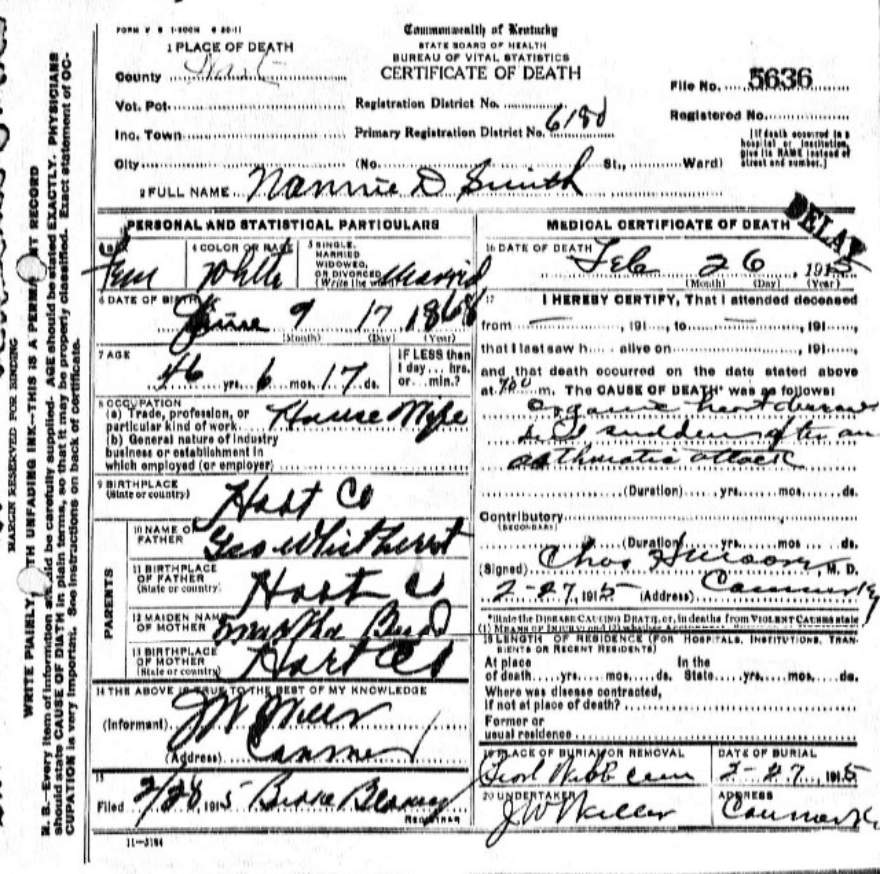 FORM V S 1-500M 4 20-11
Commonwealth of Kentucky
STATE BOARD OF HEALTH
BUREAU OF VITAL STATISTICS
CERTIFICATE OF DEATH
1 PLACE OF DEATH
County Hart
Vot. Pct.
Inc. Town
City
Registration District No.
Primary Registration District No. 6180
(No. St., Ward)
File No. 5636
Registered No.
[If death occurred in a hospital or institution, give its NAME instead of street and number.]
2 FULL NAME Nannie D Smith
PERSONAL AND STATISTICAL PARTICULARS
Fem
4 COLOR OR RACE White
5 SINGLE, MARRIED WIDOWED, OR DIVORCED (Write the word) Married
6 DATE OF BIRTH
June 9 17, 1868
(Month) (Day) (Year)
7 AGE
46 yrs. 6 mos. 17 ds.
IF LESS than 1 day... hrs. or... min.?
8 OCCUPATION
(a) Trade, profession, or particular kind of work House Wife
(b) General nature of industry business or establishment in which employed (or employer)
9 BIRTHPLACE (State or country) Hart Co
PARENTS
10 NAME OF FATHER Geo
11 BIRTHPLACE OF FATHER (State or country) Hart Co
12 MAIDEN NAME OF MOTHER Martha
13 BIRTHPLACE OF MOTHER (State or country) Hart Co
14 THE ABOVE IS TRUE TO THE BEST OF MY KNOWLEDGE
(Informant) J W
(Address) Canmer
15
Filed 2/28, 1915
REGISTRAR
11-3184
MEDICAL CERTIFICATE OF DEATH
DELAY
16 DATE OF DEATH
Feb 26, 1915
(Month) (Day) (Year)
17 I HEREBY CERTIFY, That I attended deceased
from , 191 , to , 191 ,
that I last saw h alive on , 191 ,
and that death occurred on the date stated above
at 7 00 m. The CAUSE OF DEATH* was as follows:
Organic heart disease
sudden after an
asthmatic attack
(Duration) yrs. mos. ds.
Contributory
(SECONDARY)
(Duration) yrs. mos. ds.
(Signed) Chas , M. D.
2-27, 1915 (Address) Canmer Ky
*State the DISEASE CAUSING DEATH, or, in deaths from VIOLENT CAUSES state
(1) MEANS OF INJURY and (2) whether
18 LENGTH OF RESIDENCE (FOR HOSPITALS, INSTITUTIONS, TRANSIENTS OR RECENT RESIDENTS)
At place of death yrs. mos. ds. In the State yrs. mos. ds.
Where was disease contracted,
If not at place of death?
Former or
usual residence
19 PLACE OF BURIAL OR REMOVAL
DATE OF BURIAL
2-27, 1915
20 UNDERTAKER
J W
ADDRESS
Canmer Ky
MARGIN RESERVED FOR BINDING
WRITE PLAINLY, WITH UNFADING INK—THIS IS A PERMANENT RECORD
N. B.—Every item of information should be carefully supplied. AGE should be stated EXACTLY. PHYSICIANS
should state CAUSE OF DEATH in plain terms, so that it may be properly classified. Exact statement of OC-
CUPATION is very important. See instructions on back of certificate.